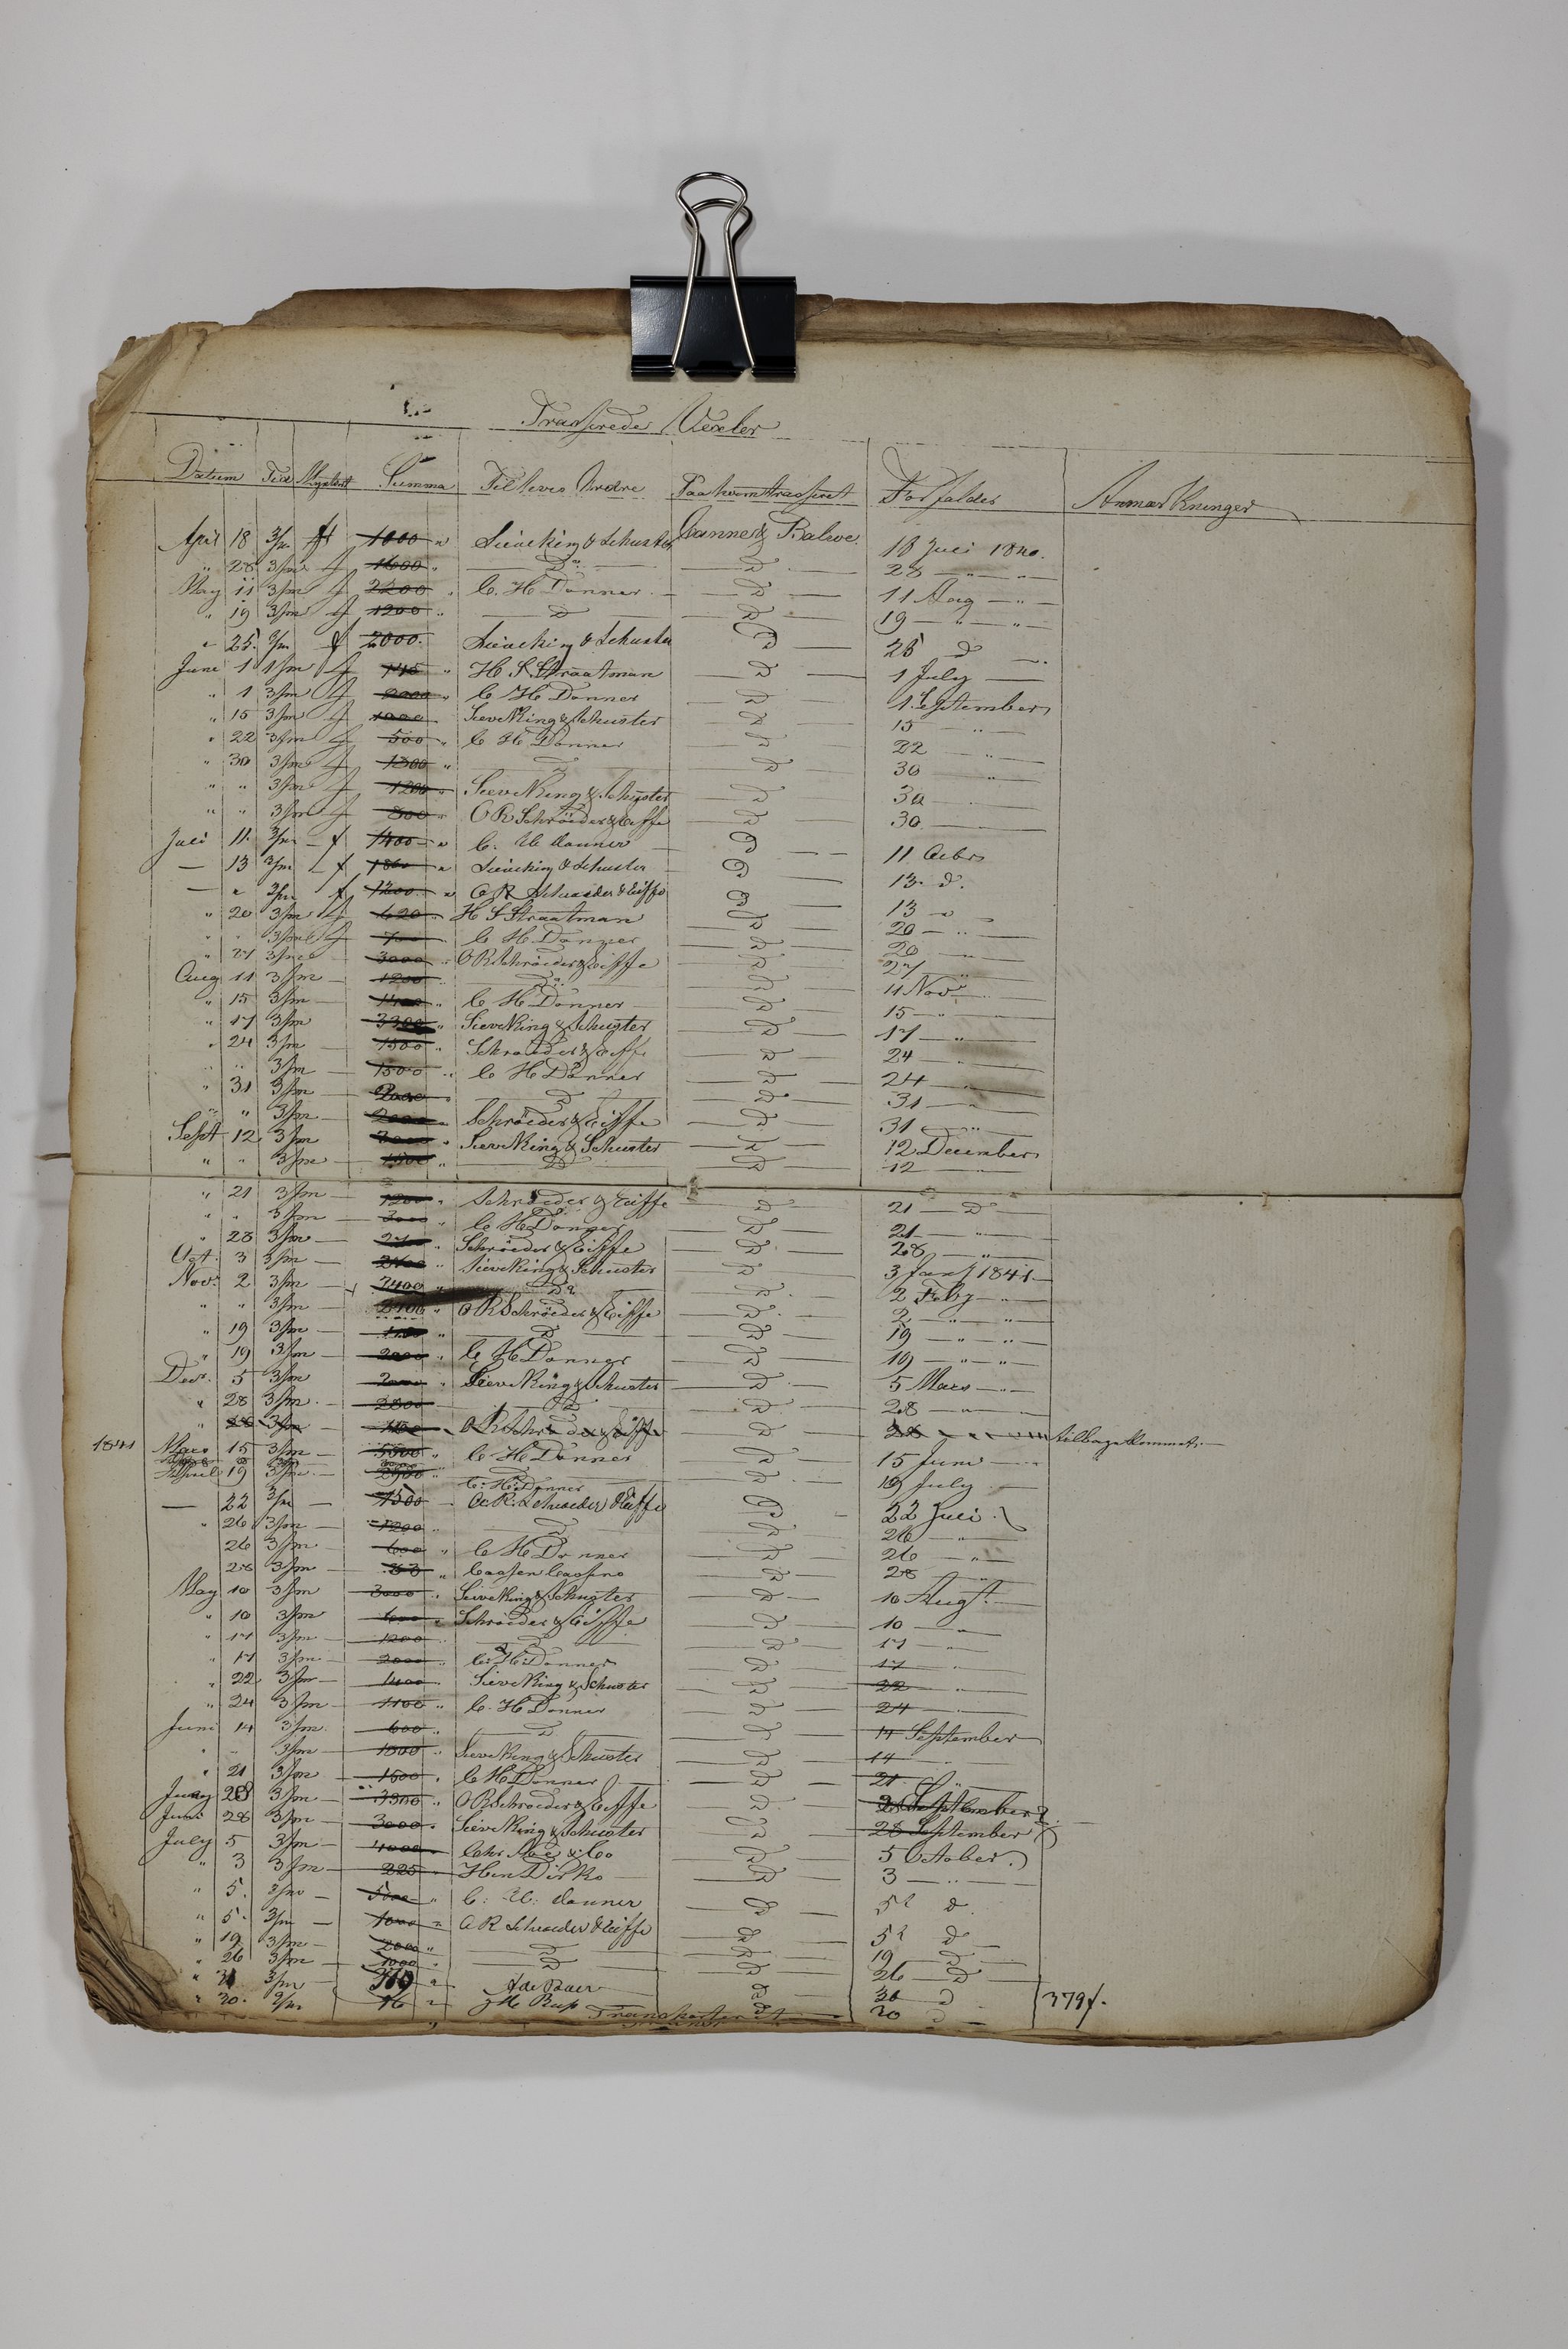 Trasserede Vexler
Datum Tid Myntsort Summa Til hvis Ordre Paa hvem trasseret Forfalder Anmærkninger
April 18 3/m 1000 " Sieveking & Schuster & Balwe. 18 Juli 1840.
" 28 3/m 1600 " Do 28 — " — " —
May 11 3/m 2200 " C. H Donner D 11 Aug — " —
" 19 3/m 1200 " D D 19 — " — " —
" 25. 3/m 2000. Sieveking & Schuster D 25 d —
June 1 1/m 745 " H S Straatman D 1 July —
" 1 3/m 2000 " C H Donner D 1 September
" 15 3/m 1000 Sieveking & Schuster D 15 — " —
" 22 3/m 500 " C H Donner D 22 — " —
" 30 3/m 1300 " D D 30 — " —
" " 3/m 1200 " Sieveking & Schuster D 30 —
" " 3/m 800 " O R Schröeder & Eiffe D 30 —
Juli 11. 3/m 1400 " C. H Donner D 11 Octbr
— 13 3/m 1800 " Sieveking & Schuster D 13 d.
— " 3/m 1200 " O R Schroeder & Eiffe D 13 "
" 20 3/m 620 " H S Straatman D 20 — " —
" " 3/m 700 " C H Donner D 20 — " —
" 27 3/m 3000 " O R Schröeder & Eiffe D 27 "
Aug 11 3/m 1200 " Do D 11 Novr
" 15 3/m 1400 " C H Donner D 15 — " —
" 17 3/m 3300 " Sieveking & Schuster D 17 — " —
" 24 3/m 1500 " Schroeder & Eiffe D 24 — " —
" " 3/m 1500 " C H Donner D 24 — " —
" 31 3/m 2000 " D D 31 — " —
" " 3/m 2000 " Schröeder & Eiffe D 31 — " —
Sept 12 3/m " Sieveking & Schuster D 12 December
" " 3/m " D D 12 — " —
" 21 3/m — 1200 " Schröeder & Eiffe D 21 — D —
" " 3/m — 3000 " C H Donner D 21 — " —
" 28 3/m — " Schröeder & Eiffe D 28 — " —
Oct. 3 3/m — " Sieveking & Schuster D 3 Jany 1841 —
Novr 2 3/m — 7400 " Do D 2 Feby — " —
" " 3/m — " O R Schröeder & Eiffe D 2 — " — " —
" 19 3/m — " D D 19 — " — " —
" 19 3/m — 2000 " C H Donner D 19 — " — " —
Decr. 5 3/m — 2000 " Sieveking & Schuster D 5 Mars — " —
" 28 3/m — 2800 D D 28 — " —
" 28 3/m — O R Schröeder & Eiffe D 28 — " — tilbagekommet. —
1841 Mars 15 3/m — 5500 " C H Donner D 15 Juni —
April 19 3/m — C. H. Donner D 19 July —
— 22 3/m — 1500 O. R. Schroeder & Eiffe D 22 Juli.
" 26 3/m — 1200 " D D 26 — " —
26 3/m — 600 " C H Donner D 26 — " —
28 3/m — " D 28 — " —
May 10 3/m 3000 " Sieveking & Schuster D — 10 Augt. —
" 10 3/m 600 " Schroeder & Eiffe D 10 — " —
" 17 3/m 1200 " D D 17 — " —
" 17 3/m — 2000 " C. H. Donner D 17 — " —
" 22 3/m — 1400 " Sieveking & Schuster D 22 — " —
" 24 3/m — 1100 " C. H Donner D 24 — " —
Juni 14 3/m 600 " D D 14 September
" " 3/m — " Sieveking & Schuster D 14 — " —
" 21 3/m — 1500 " C H Donner D 21 "
28 3/m — 3300 " O R Schroeder & Eiffe D September
Juni 28 3/m — 3000 " Sieveking & Schuster D 28 September
July 5 3/m — 4000 " & Co D 5 October.
" 3 3/m — 225 " Hen Dirks D 3 — " —
" 5. 3/m — " C. H. Donner D 5 d.
" 5. 3/m — 1000 " O R Schroeder & Eiffe D 5 d —
" 19 3/m — 2000 " D D 19 — D —
" 26 3/m — 1000 " D D 26 — D —
" 3/m " D d 379 f.
" 30. 3/m 16 " D 30 d —
Transporteret